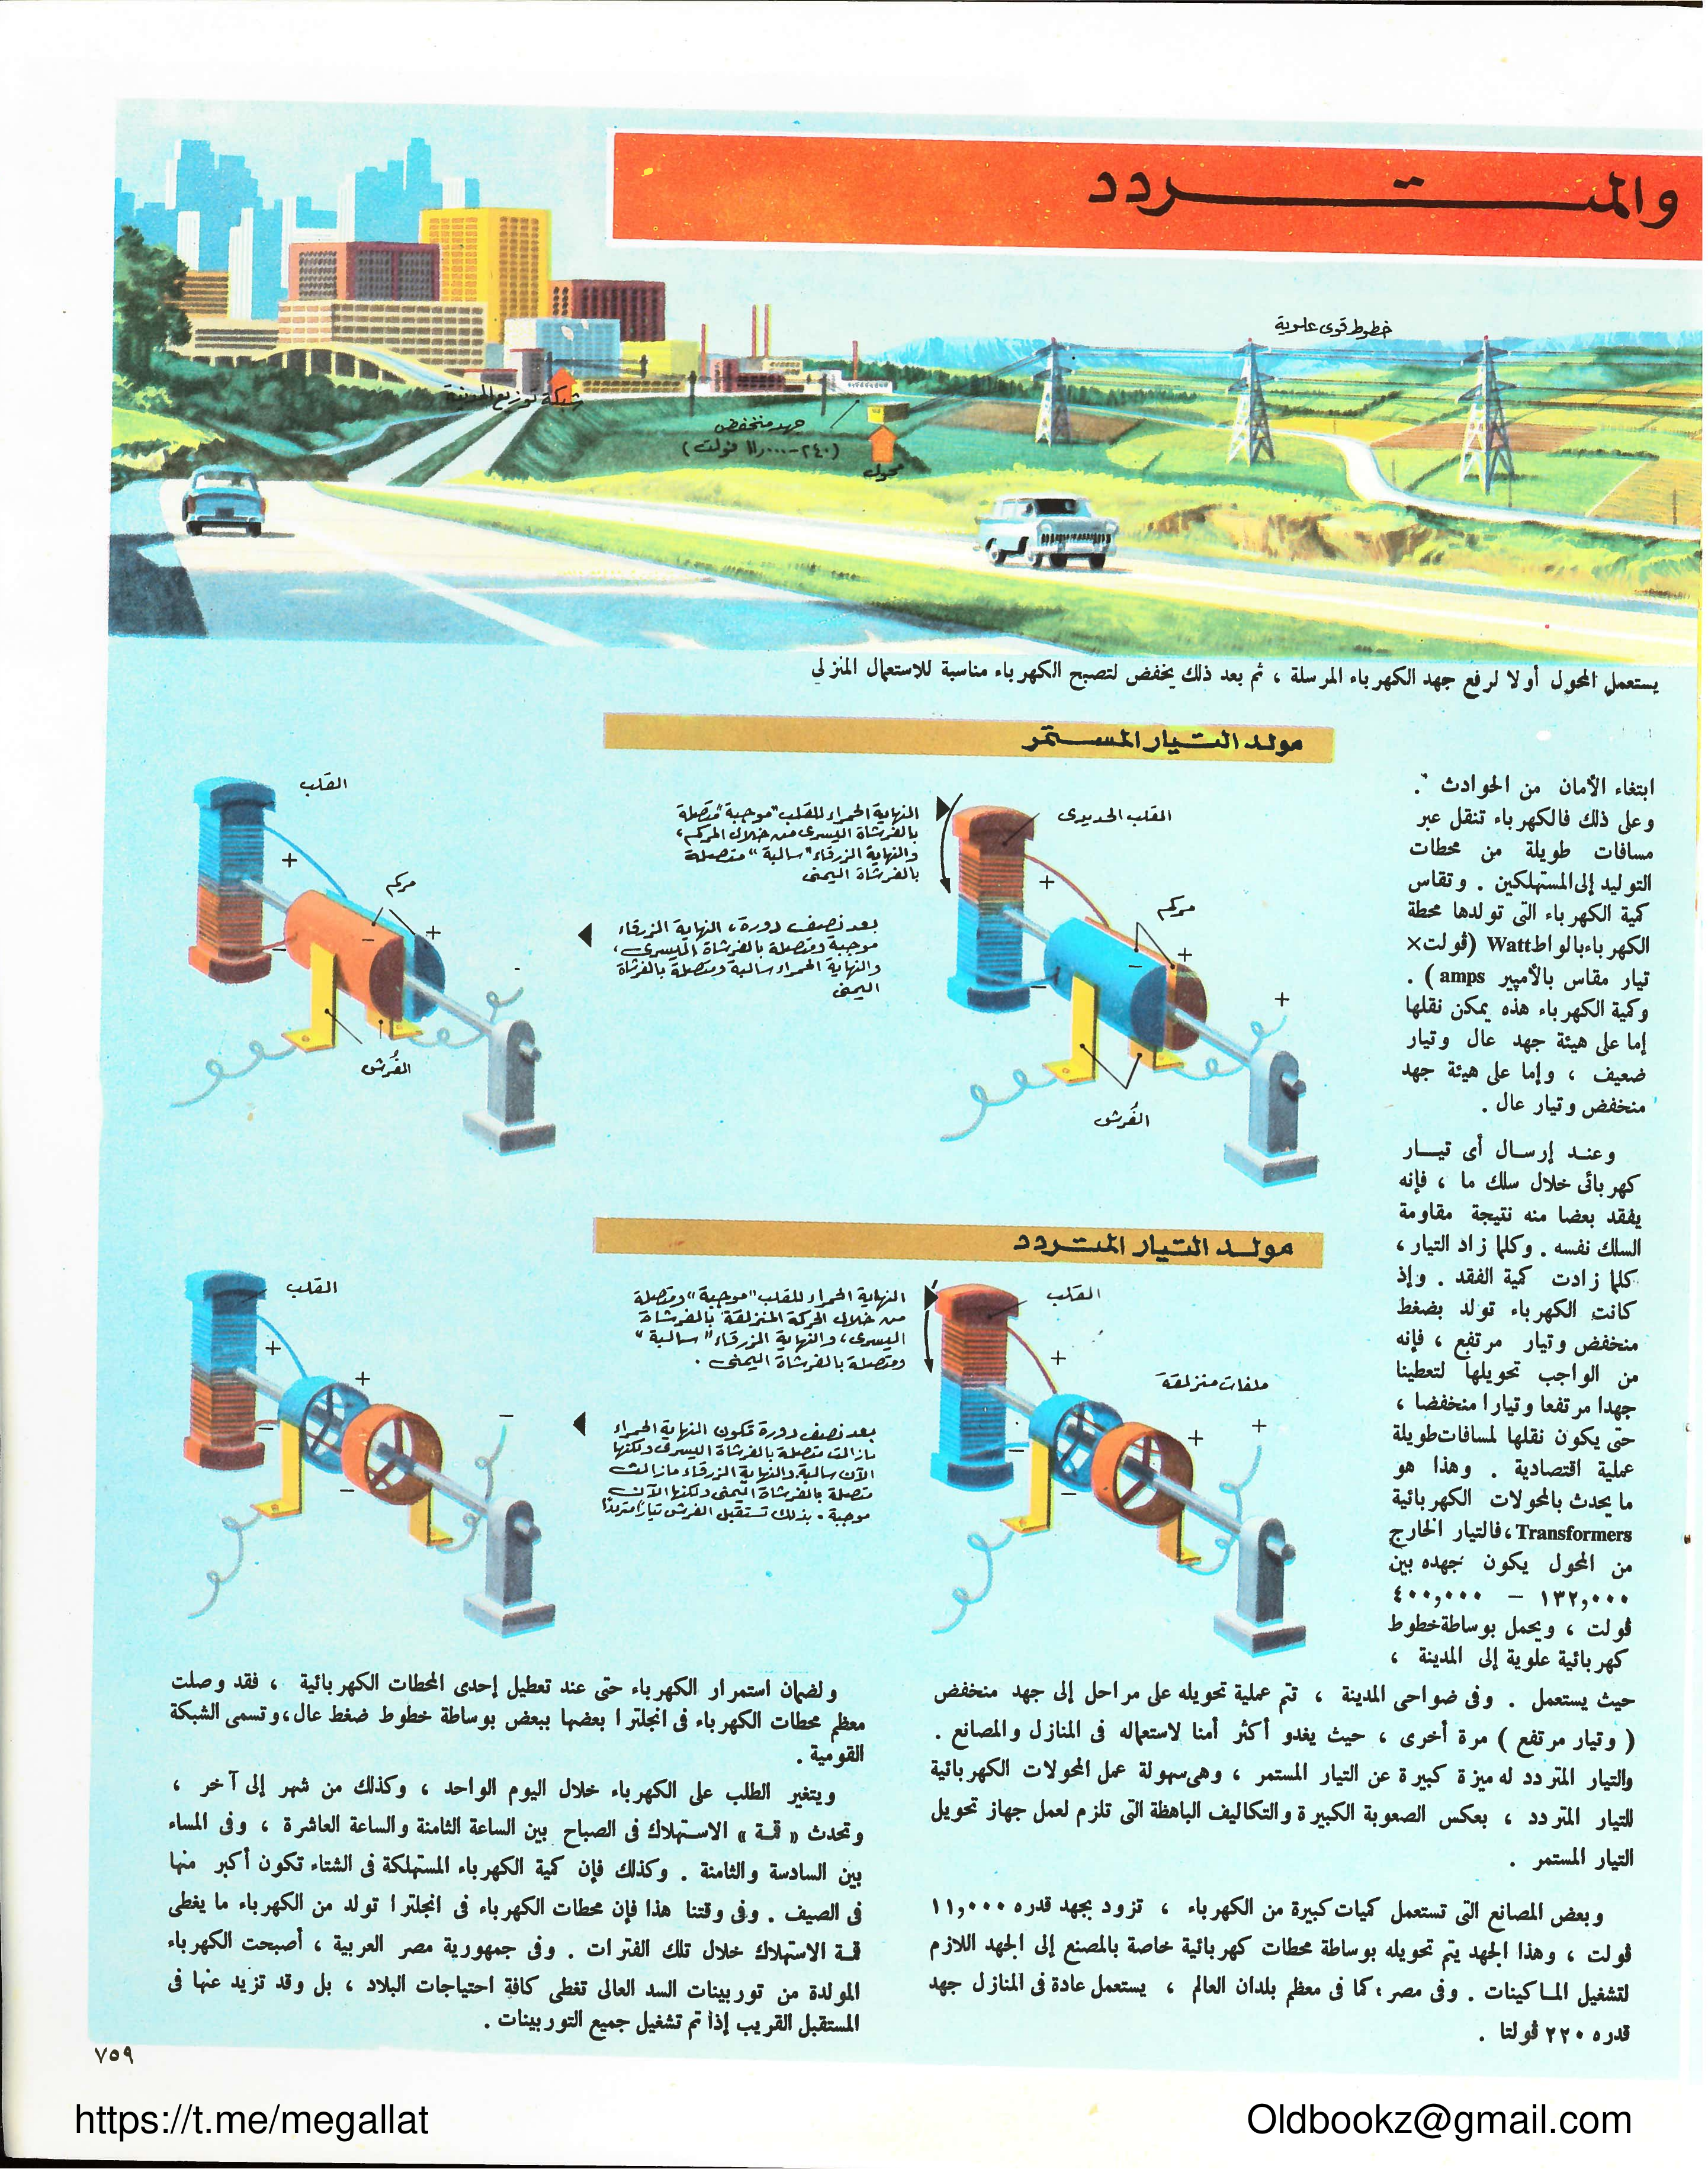 والمتردد
خطوط قوى علوية
شبكة توزيع المدينة
جهد منخفض
(٢٤٠-١١,٠٠٠ فولت)
محول
يستعمل المحول أولا لرفع جهد الكهرباء المرسلة ، ثم بعد ذلك يخفض لتصبح الكهرباء مناسبة للاستعمال المنزلي
ابتغاء الأمان من الحوادث .
وعلى ذلك فالكهرباء تنقل عبر
مسافات طويلة من محطات
التوليد إلى المستهلكين . وتقاس
كمية الكهرباء التى تولدها محطة
الكهرباء بالواط Watt (ڤولت×
تيار مقاس بالأمپير amps ) .
وكمية الكهرباء هذه يمكن نقلها
إما على هيئة جهد عال وتيار
ضعيف ، وإما على هيئة جهد
منخفض وتيار عال .
وعند إرسال أى تيار
كهربائى خلال سلك ما ، فإنه
يفقد بعضا منه نتيجة مقاومة
السلك نفسه . وكلما زاد التيار ،
كلما زادت كمية الفقد . وإذ
كانت الكهرباء تولد بضغط
منخفض وتيار مرتفع ، فإنه
من الواجب تحويلها لتعطينا
جهدا مرتفعا وتيارا منخفضا ،
حتى يكون نقلها لمسافات طويلة
عملية اقتصادية . وهذا هو
ما يحدث بالمحولات الكهربائية
Transformers ، فالتيار الخارج
من المحول يكون جهده بين
١٣٢,٠٠٠ – ٤٠٠,٠٠٠
ڤولت ، ويحمل بوساطة خطوط
كهربائية علوية إلى المدينة ،
حيث يستعمل . وفى ضواحى المدينة ، تتم عملية تحويله على مراحل إلى جهد منخفض
( وتيار مرتفع ) مرة أخرى ، حيث يغدو أكثر أمنا لاستعماله فى المنازل والمصانع .
والتيار المتردد له ميزة كبيرة عن التيار المستمر ، وهى سهولة عمل المحولات الكهربائية
للتيار المتردد ، بعكس الصعوبة الكبيرة والتكاليف الباهظة التى تلزم لعمل جهاز تحويل
التيار المستمر .
وبعض المصانع التى تستعمل كميات كبيرة من الكهرباء ، تزود بجهد قدره ١١,٠٠٠
ڤولت ، وهذا الجهد يتم تحويله بوساطة محطات كهربائية خاصة بالمصنع إلى الجهد اللازم
لتشغيل الماكينات . وفى مصر ، كما فى معظم بلدان العالم ، يستعمل عادة فى المنازل جهد
قدره ٢٢٠ ڤولتا .
مولد التيار المستمر
القلب الحديدى
النهاية الحمراء للقلب "موجبة" متصلة
بالفرشاة اليسرى من خلال المركم ،
والنهاية الزرقاء "سالبة" متصلة
بالفرشاة اليمنى
+
مركم
+
−
−
+
الفُرش
القلب
+
مركم
+
−
−
-
الفُرش
بعد نصف دورة ، النهاية الزرقاء
موجبة ومتصلة بالفرشاة اليسرى ،
والنهاية الحمراء سالبة ومتصلة بالفرشاة
اليمنى
مولد التيار المتردد
القلب
النهاية الحمراء للقلب "موجبة" ومتصلة
من خلال الحركة المنزلقة بالفرشاة
اليسرى ، والنهاية الزرقاء "سالبة"
ومتصلة بالفرشاة اليمنى .
+
ملفات منزلقة
+
+
−
−
القلب
+
+
−
−
−
بعد نصف دورة تكون النهاية الحمراء
مازالت متصلة بالفرشاة اليسرى ولكنها
الآن سالبة . والنهاية الزرقاء مازالت
متصلة بالفرشاة اليمنى ولكنها الآن
موجبة . بذلك تستقبل الفرش تيارًا مترددًا
ولضمان استمرار الكهرباء حتى عند تعطيل إحدى المحطات الكهربائية ، فقد وصلت
معظم محطات الكهرباء فى انجلترا بعضها ببعض بوساطة خطوط ضغط عال ، وتسمى الشبكة
القومية .
ويتغير الطلب على الكهرباء خلال اليوم الواحد ، وكذلك من شهر إلى آخر ،
وتحدث « قمة » الاستهلاك فى الصباح بين الساعة الثامنة والساعة العاشرة ، وفى المساء
بين السادسة والثامنة . وكذلك فإن كمية الكهرباء المستهلكة فى الشتاء تكون أكبر منها
فى الصيف . وفى وقتنا هذا فإن محطات الكهرباء فى انجلترا تولد من الكهرباء ما يغطى
قمة الاستهلاك خلال تلك الفترات . وفى جمهورية مصر العربية ، أصبحت الكهرباء
المولدة من توربينات السد العالى تغطى كافة احتياجات البلاد ، بل وقد تزيد عنها فى
المستقبل القريب إذا تم تشغيل جميع التوربينات .
٧٥٩
https://t.me/megallat
Oldbookz@gmail.com